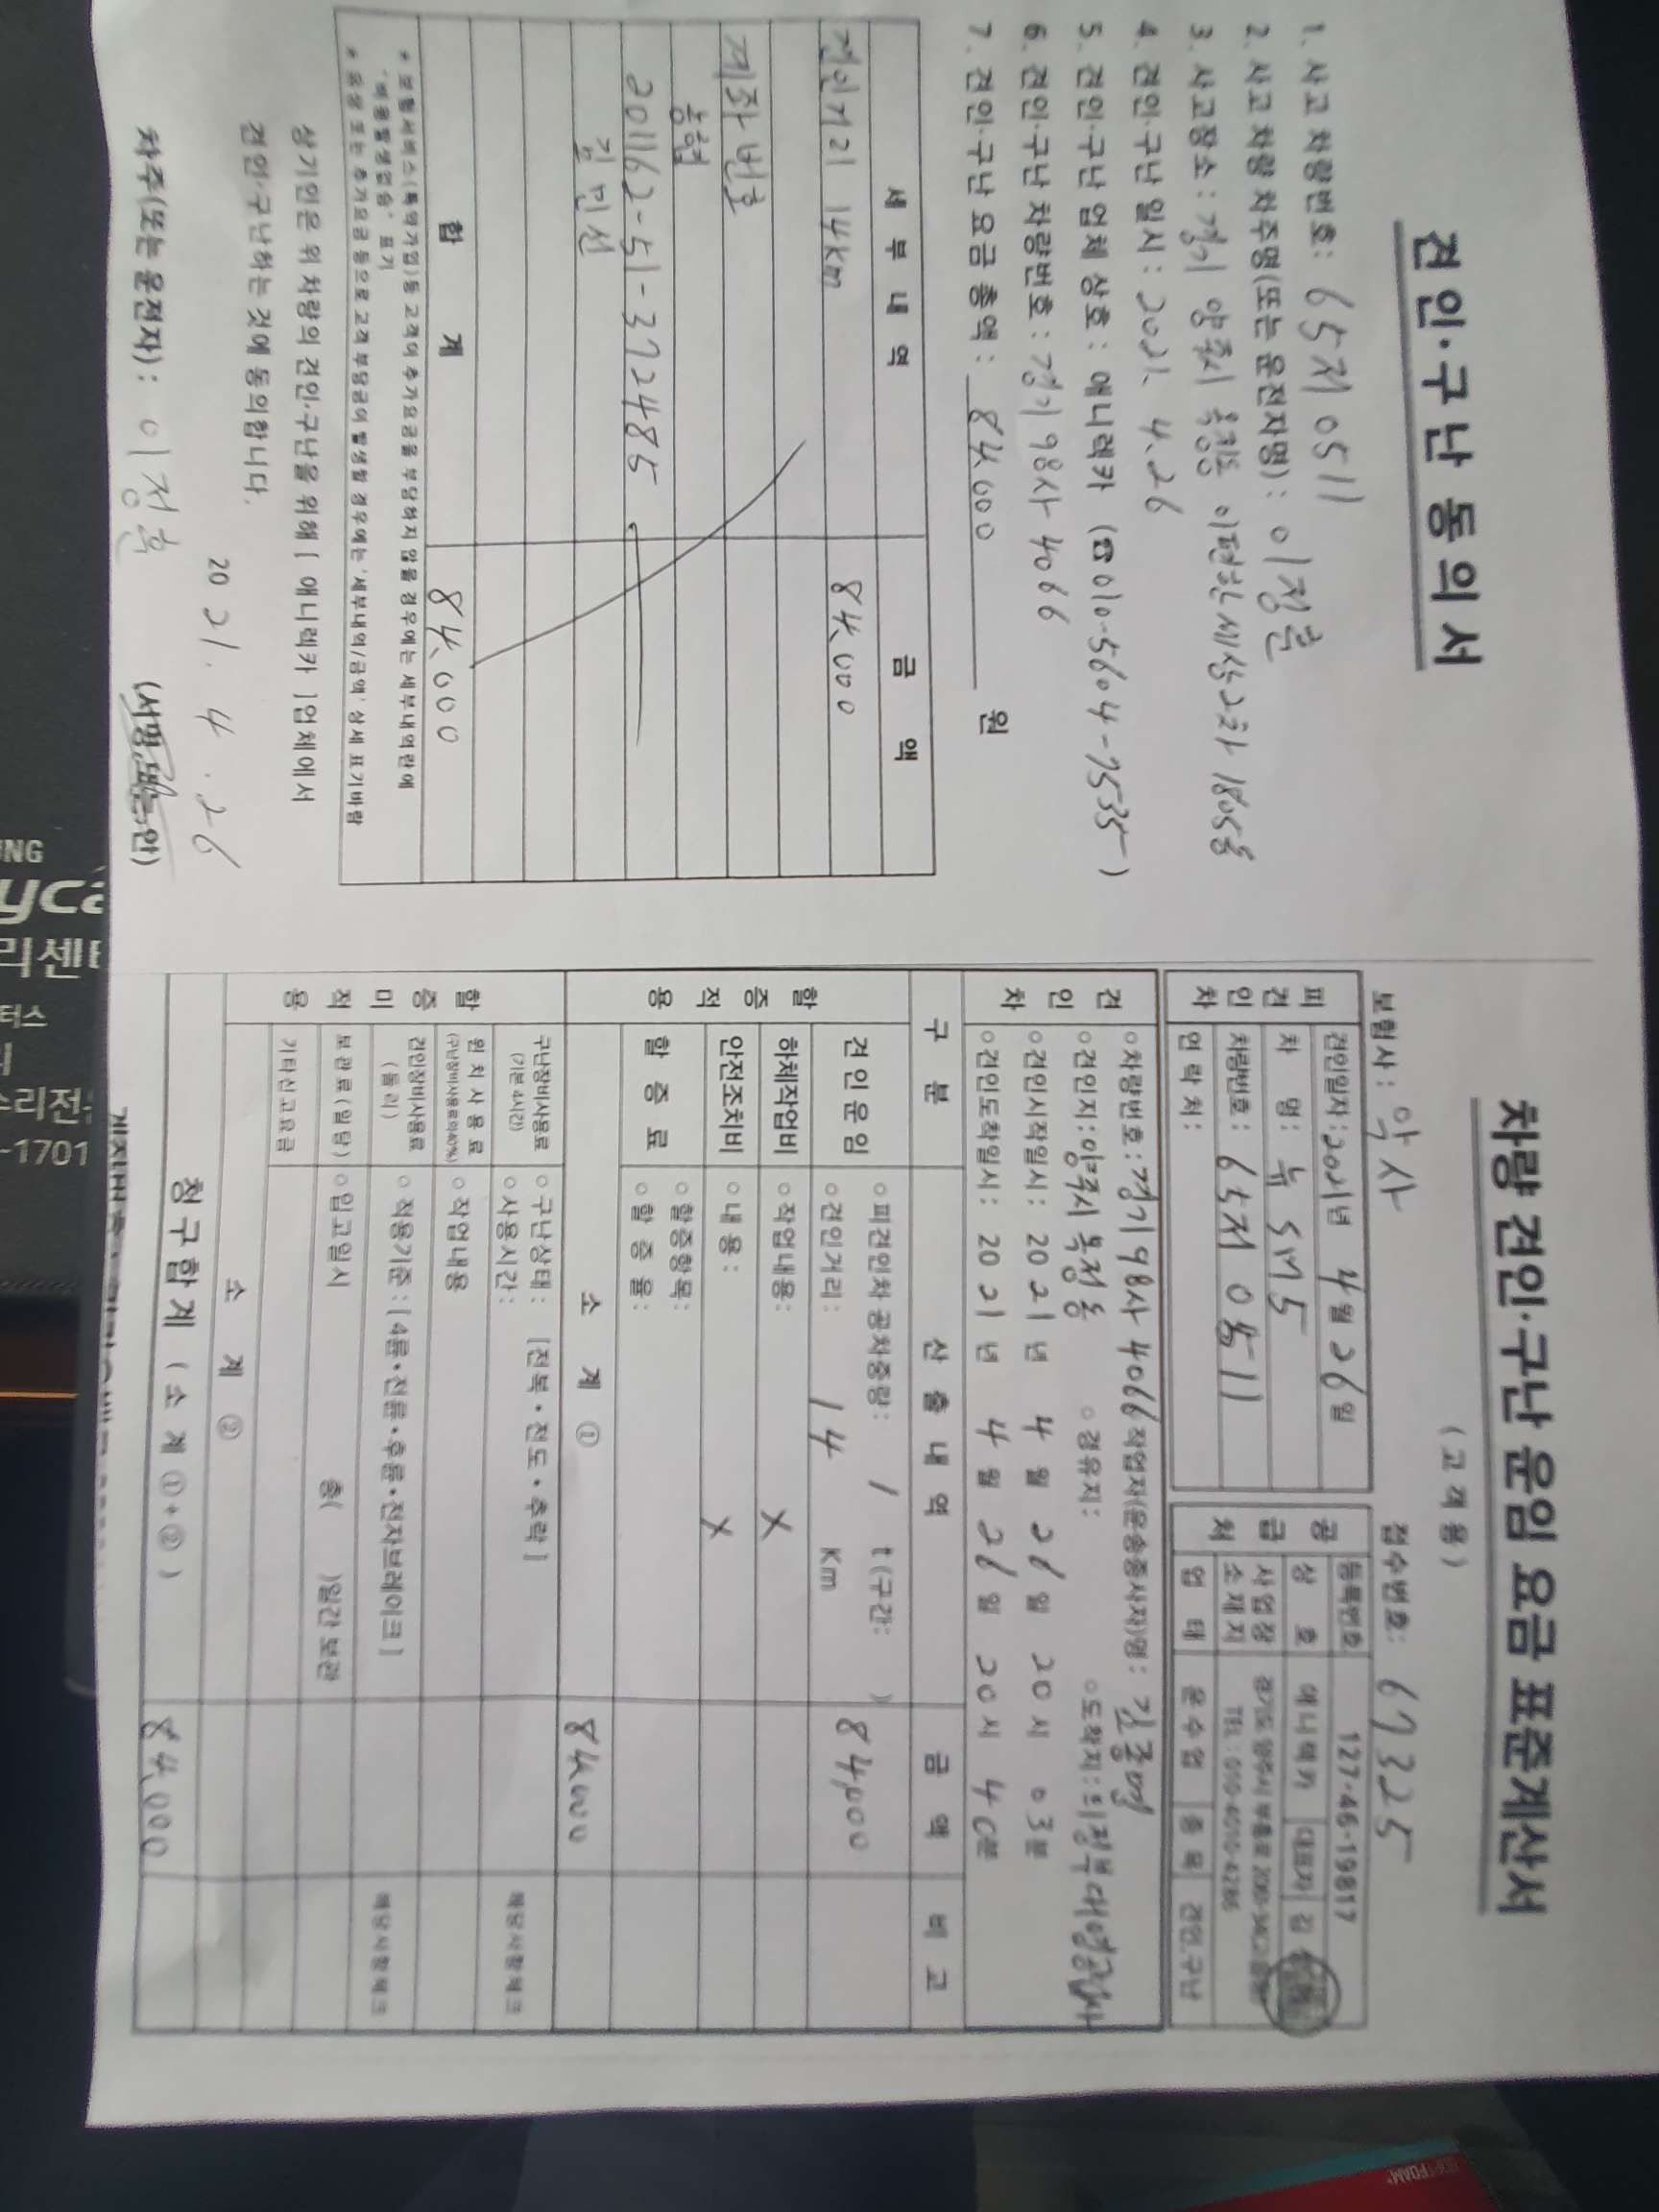 견인·구난 동의서
1. 사고 차량번호: 65저0511
2. 사고 차량 차주명(또는 운전자명): 이정훈
3. 사고장소: 경기 양주시 옥정동 이편한세상2차 1805동
4. 견인·구난 일시: 2021. 4. 26
5. 견인·구난 업체 상호: 애니렉카 (☎010-5604-7535)
6. 견인·구난 차량번호: 경기98사 4066
7. 견인·구난 요금 총액: 84,000 원
세 부 내 역 금 액
견인거리 14km 84,000
계좌번호
농협
201162-51-372485
김민선
합 계 84,000
* 보험서비스(특약가입)등 고객이 추가요금을 부담하지 않을 경우에는 세부내역란에
"비용발생없음" 표기
* 유상 또는 추가요금 등으로 고객 부담금이 발생할 경우에는 '세부내역/금액' 상세 표기바람
상기인은 위 차량의 견인·구난을 위해 [ 애니렉카 ]업체에서
견인·구난하는 것에 동의합니다.
2021. 4. 26
차주(또는 운전자): 이정훈 (서명 또는 인)
차량 견인·구난 운임 요금 표준계산서
(고객용)
보험사: 악사 접수번호: 67325
피견인차
견인일자: 2021년 4월 26일
차 명: 뉴 SM5
차량번호: 65저 0511
연락처:
공급처
등록번호 127-46-19817
상 호 애니렉카 대표자 김
사업장 소재지 경기도 양주시
TEL: 010-4010-4286
업 태 운수업 종 목 견인.구난
견인차
○차량번호: 경기98사 4066 작업자(운송종사자)명:
○견인지: 양주시 옥정동 ○경유지: ○도착지: 의정부
○견인시작일시: 2021년 4월 26일 20시 03분
○견인도착일시: 2021년 4월 26일 20시 40분
구 분 산 출 내 역 금 액 비 고
할증적용
견인운임 ○피견인차 공차중량: / t(구간: ) 84,000
○견인거리: 14 Km
하체작업비 ○작업내용: X
안전조치비 ○내용: X
할증료 ○할증항목:
○할증율:
소 계 ① 84,000
할증미적용
구난장비사용료 (기본 4시간) ○구난상태: [전복·전도·추락] 해당사항체크
○사용시간:
윈치사용료 (구난장비사용료의40%) ○작업내용
견인장비사용료 (돌리) ○적용기준: [4륜·전륜·후륜·전자브레이크] 해당사항체크
보관료(일당) ○입고일시 총( )일간 보관
기타신고요금
소 계 ②
청구합계 (소 계 ①+②) 84,000
리센터
-1701